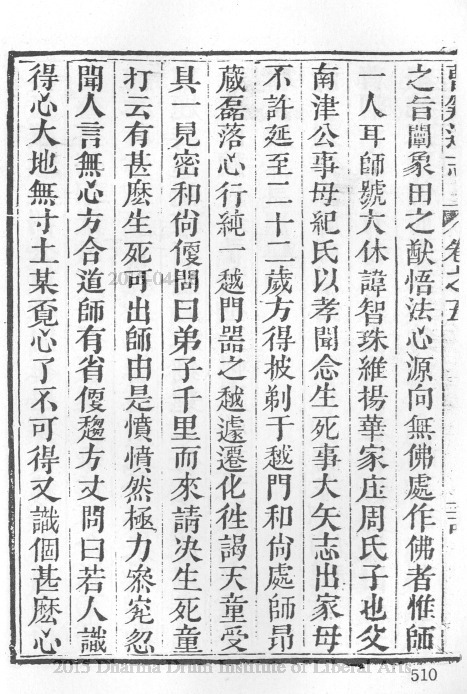 曹谿通志 卷之五
之旨闡象田之猷悟法心源向無佛處作佛者惟師
一人耳師號大休諱智珠維揚華家庄周氏子也父
南津公事母紀氏以孝聞念生死事大矢志出家母
不許延至二十二歲方得披剃于越門和尙處師昂
藏磊落心行純一越門器之越遽遷化徃謁天童受
具一見密和尙便問曰弟子千里而來請决生死童
打云有甚麽生死可出師由是憤憤然極力叅究忽
聞人言無心方合道師有省便趨方丈問曰若人識
得心大地無寸土某覔心了不可得又識個甚麽心
510
2015 Dharma Drum Institute of Liberal Arts